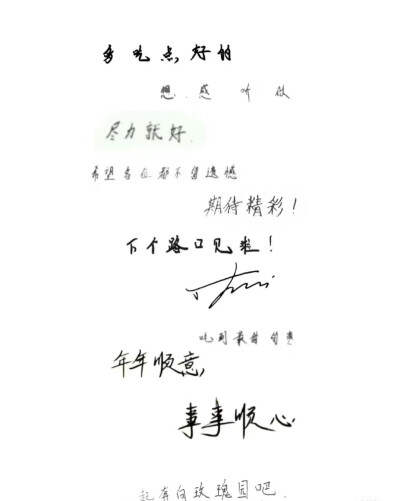 多吃点,好的
想.感 听 做
尽力就好.
希望各位都不留遗憾
期待精彩!
下个路口见啦!
吃到最甜的枣
年年顺意,
事事顺心
一起奔向玫瑰园吧.